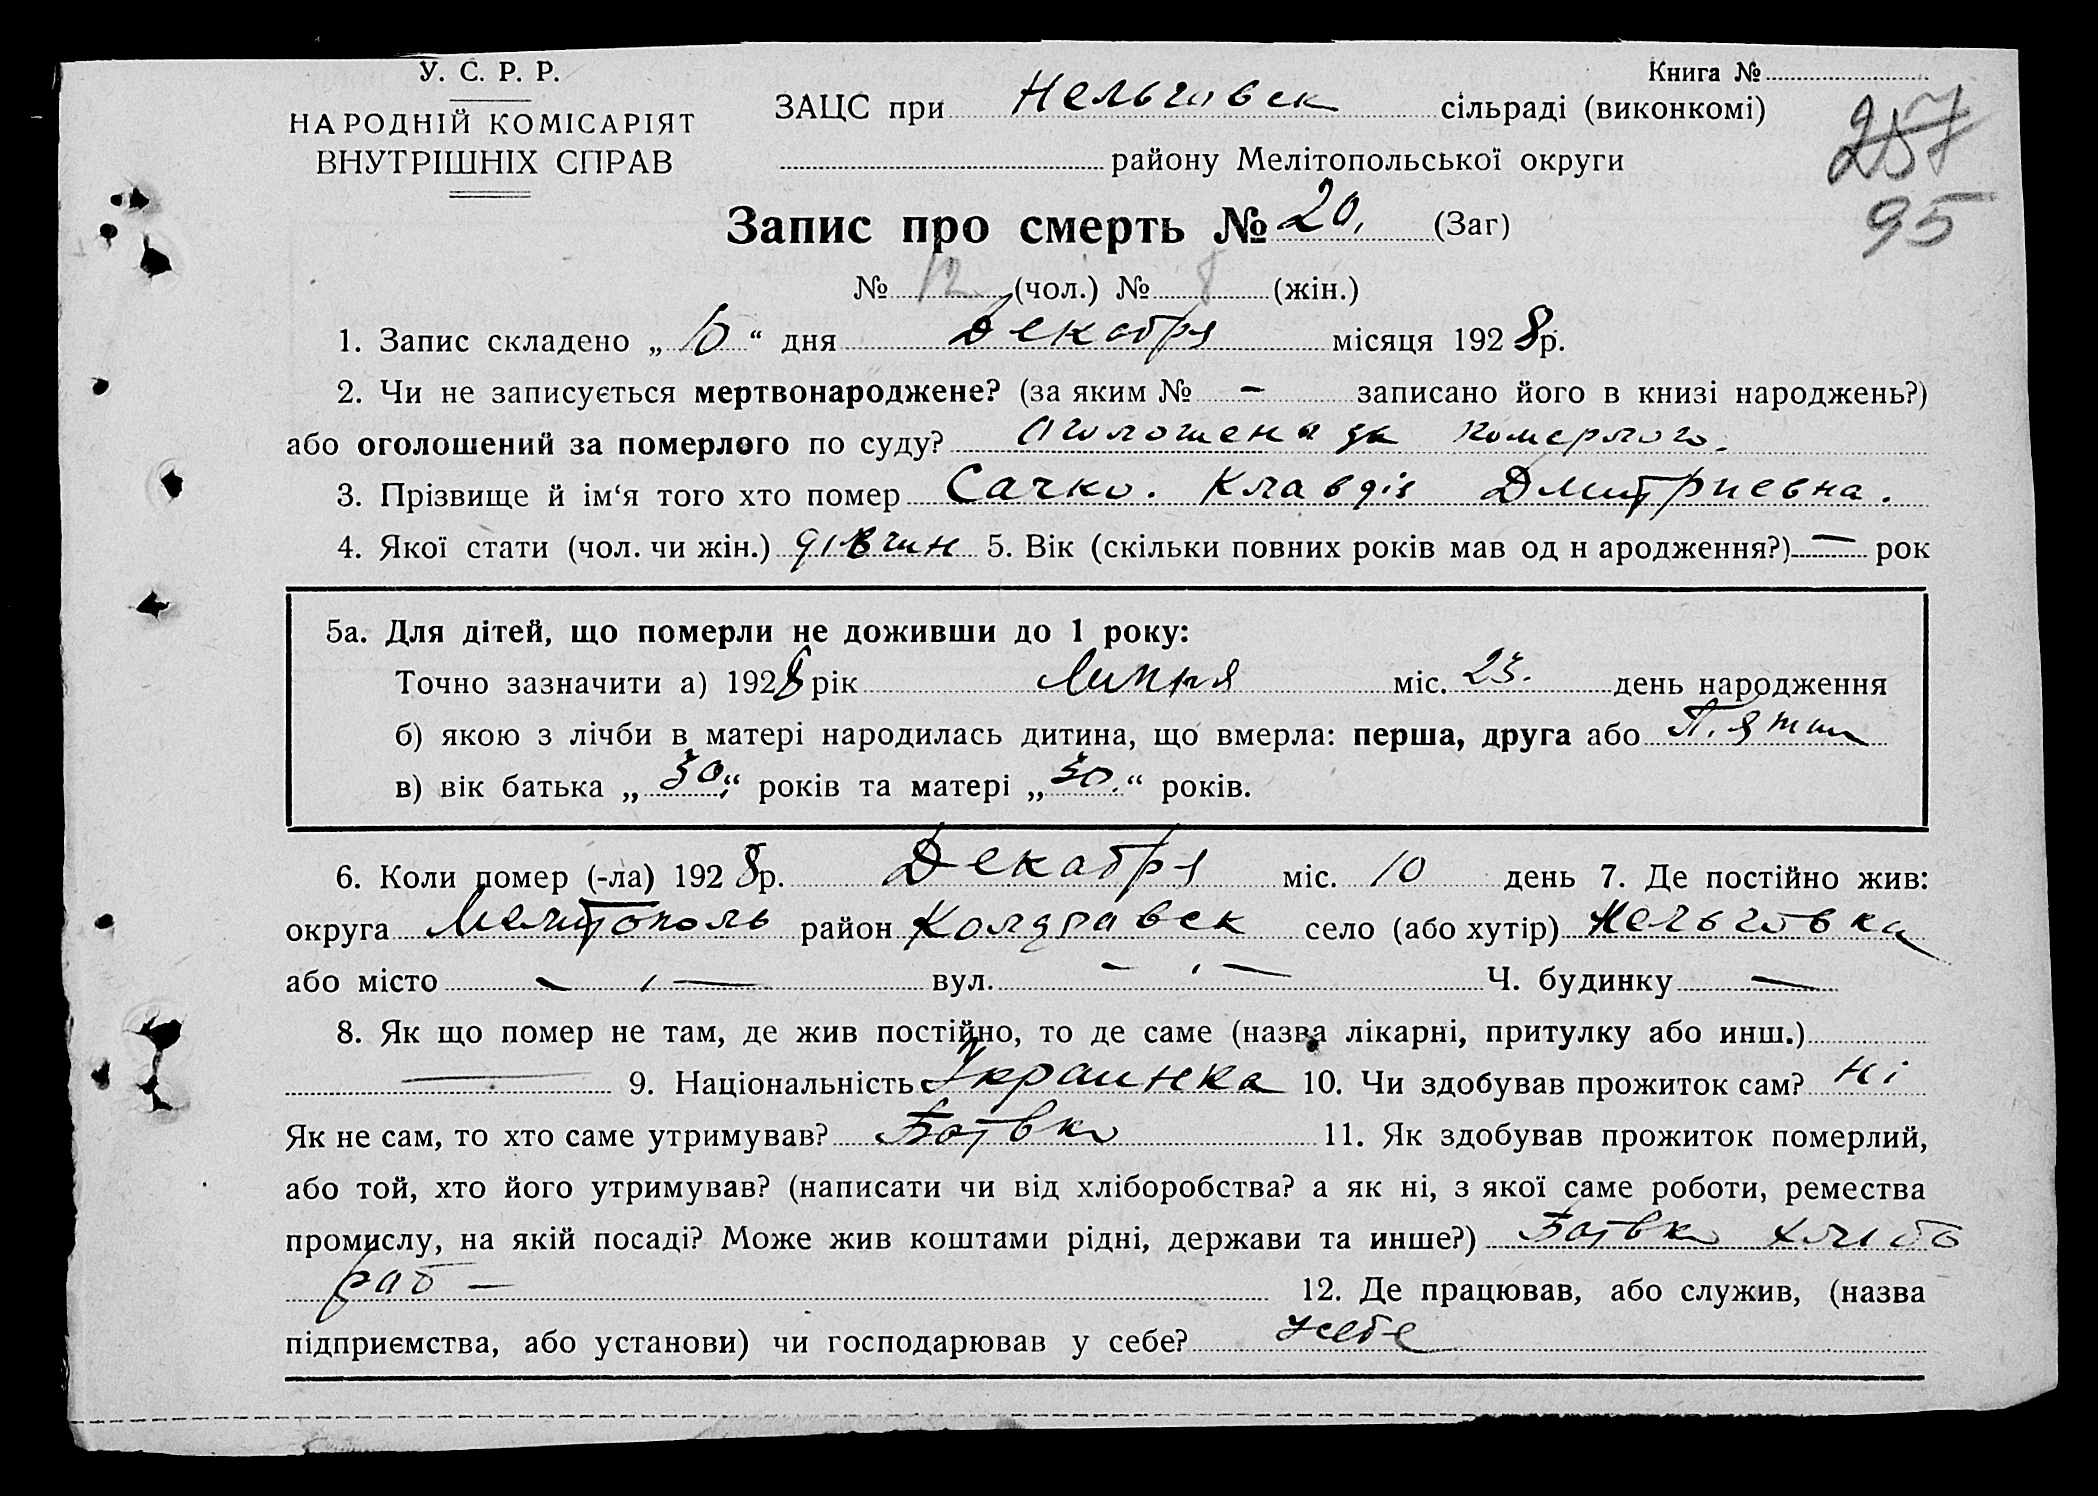 У. С. Р. Р.
НАРОДНІЙ КОМІСАРІЯТ
ВНУТРІШНІХ СПРАВ
Книга №
ЗАЦС при Нельговск сільраді (виконкомі)
257
95
району Мелітопольської округи
Запис про смерть № 20. (Заг)
№ 12 (чол.) № 8 (жін.)
1. Запис складено „ “ дня Декабря місяця 1928р.
2. Чи не записується мертвонароджене? (за яким № — записано його в книзі народжень?)
або оголошений за померлого по суду? Оголошена за померлого.
3. Прізвище й ім‘я того хто помер Сачко. Клавдія Дмитриевна.
4. Якої стати (чол. чи жін.) дівчин 5. Вік (скільки повних років мав од н ародження?) — рок
5а. Для дітей, що померли не доживши до 1 року:
Точно зазначити а) 1928 рік Липня міс. 23. день народження
б) якою з лічби в матері народилась дитина, що вмерла: перша, друга або
в) вік батька „30“ років та матері „30.“ років.
6. Коли помер (-ла) 1928р. Декабря міс. 10 день 7. Де постійно жив:
округа Мелитополь район село (або хутір) Нельговка
або місто — вул. — Ч. будинку —
8. Як що помер не там, де жив постійно, то де саме (назва лікарні, притулку або инш.)
— 9. Національність Украинка 10. Чи здобував прожиток сам? Ні
Як не сам, то хто саме утримував? Батько 11. Як здобував прожиток померлий,
або той, хто його утримував? (написати чи від хліборобства? а як ні, з якої саме роботи, ремества
промислу, на якій посаді? Може жив коштами рідні, держави та инше?) Батько хлібо
раб — 12. Де працював, або служив, (назва
підприємства, або установи) чи господарював у себе?